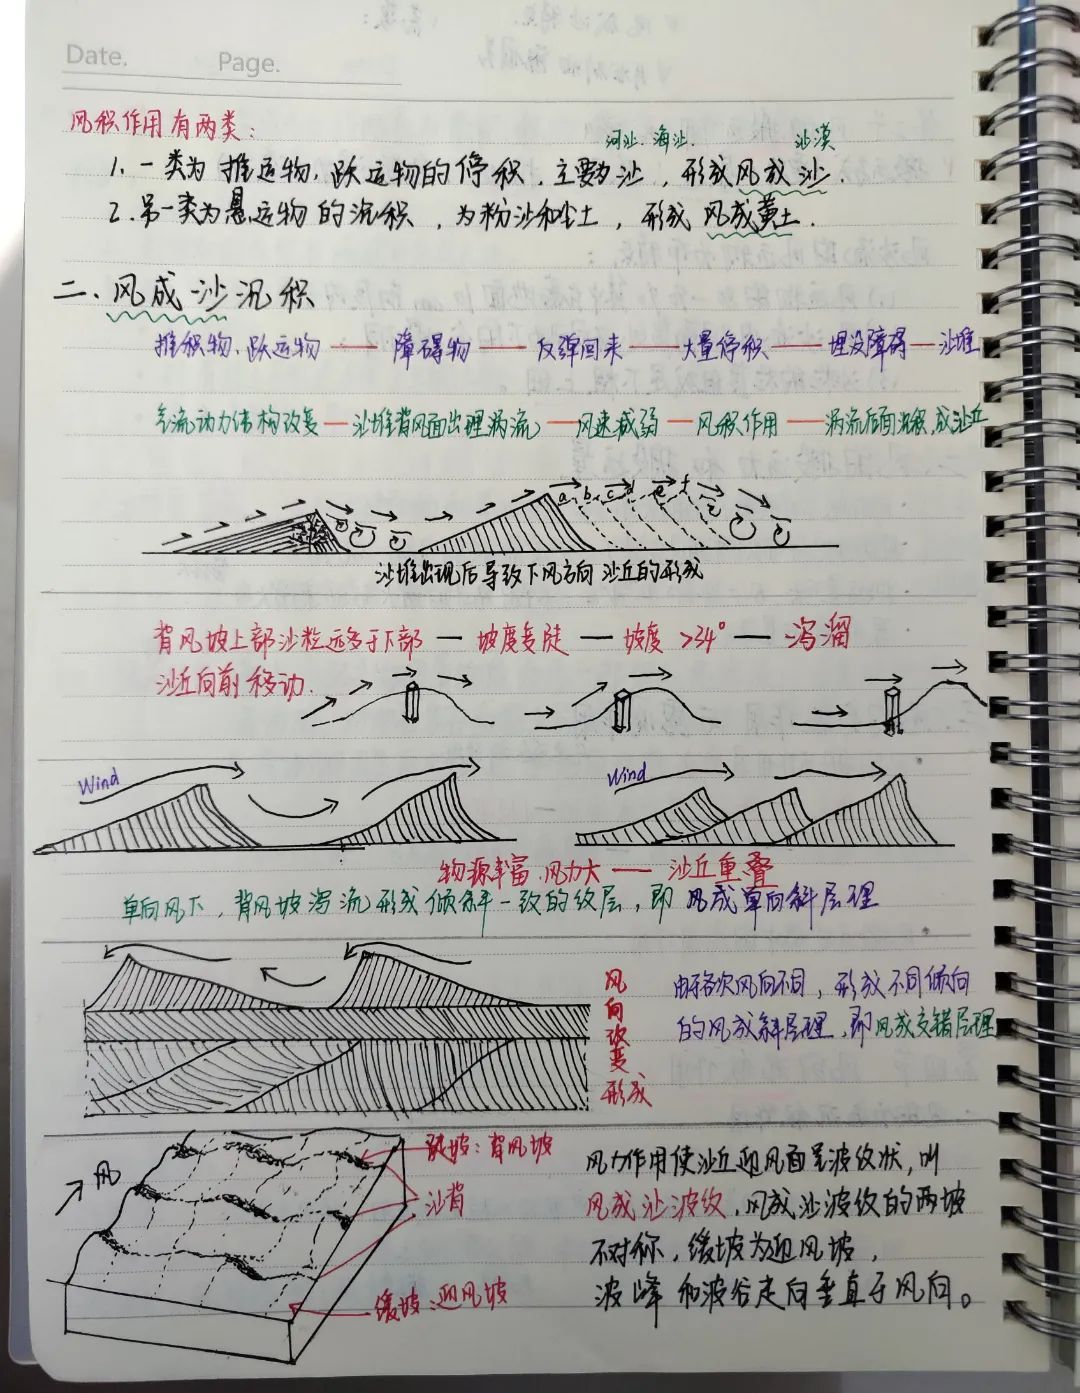 Date.
Page.
风积作用有两类：
河沙.海沙.
沙漠
1. 一类为推运物、跃运物的停积，主要为沙，形成风成沙.
2. 另一类为悬运物的沉积，为粉沙和尘土，形成风成黄土.
二、风成沙沉积
推积物、跃运物——障碍物——反弹回来——大量停积——埋没障碍—沙堆
气流动力结构改变—沙堆背风面出现涡流—风速减弱—风积作用——涡流后面沉积,成沙丘
a b c d e f
沙堆出现后导致下风方向沙丘的形成
背风坡上部沙粒远多于下部—坡度变陡—坡度>34°—泻溜
沙丘向前移动.
Wind
Wind
物源丰富.风力大——沙丘重叠
单向风下，背风坡泻流形成倾斜一致的纹层，即风成单向斜层理
风向改变形成
由于各次风向不同，形成不同倾向
的风成斜层理，即风成交错层理
风
陡坡：背风坡
沙脊
缓坡:迎风坡
风力作用使沙丘迎风面呈波纹状，叫
风成沙波纹，风成沙波纹的两坡
不对称，缓坡为迎风坡，
波峰和波谷走向垂直于风向。